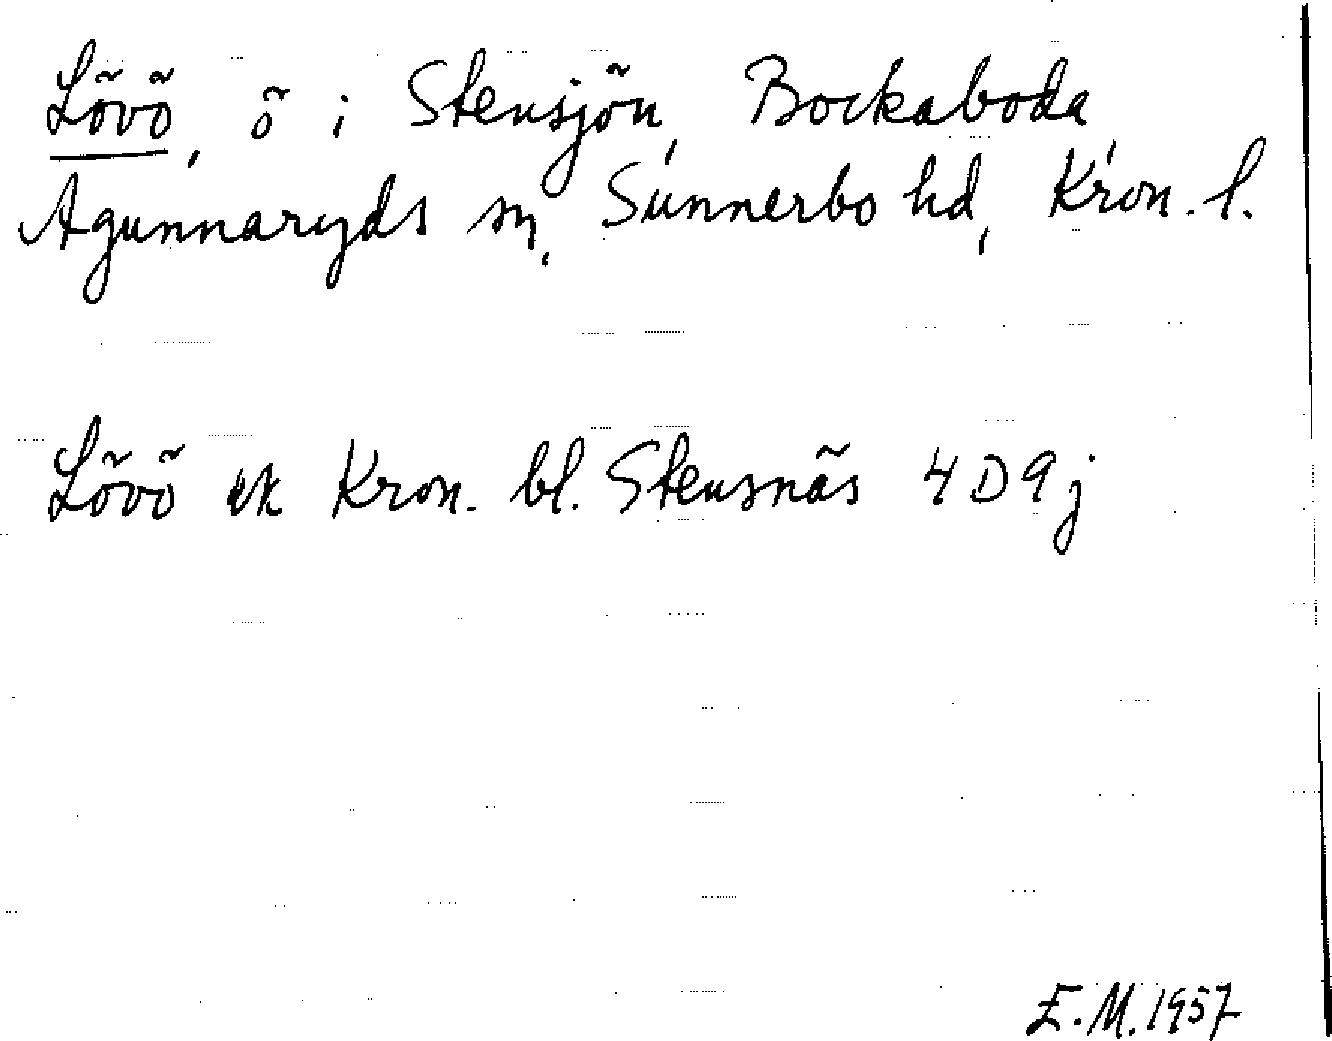 Lövö, ö i Stensjön, Bockaboda,
Agunnaryds sn, Sunnerbo hd, Kron. l.
Lövö ek Kron. bl. Stensnäs 4D9j
E.M. 1957